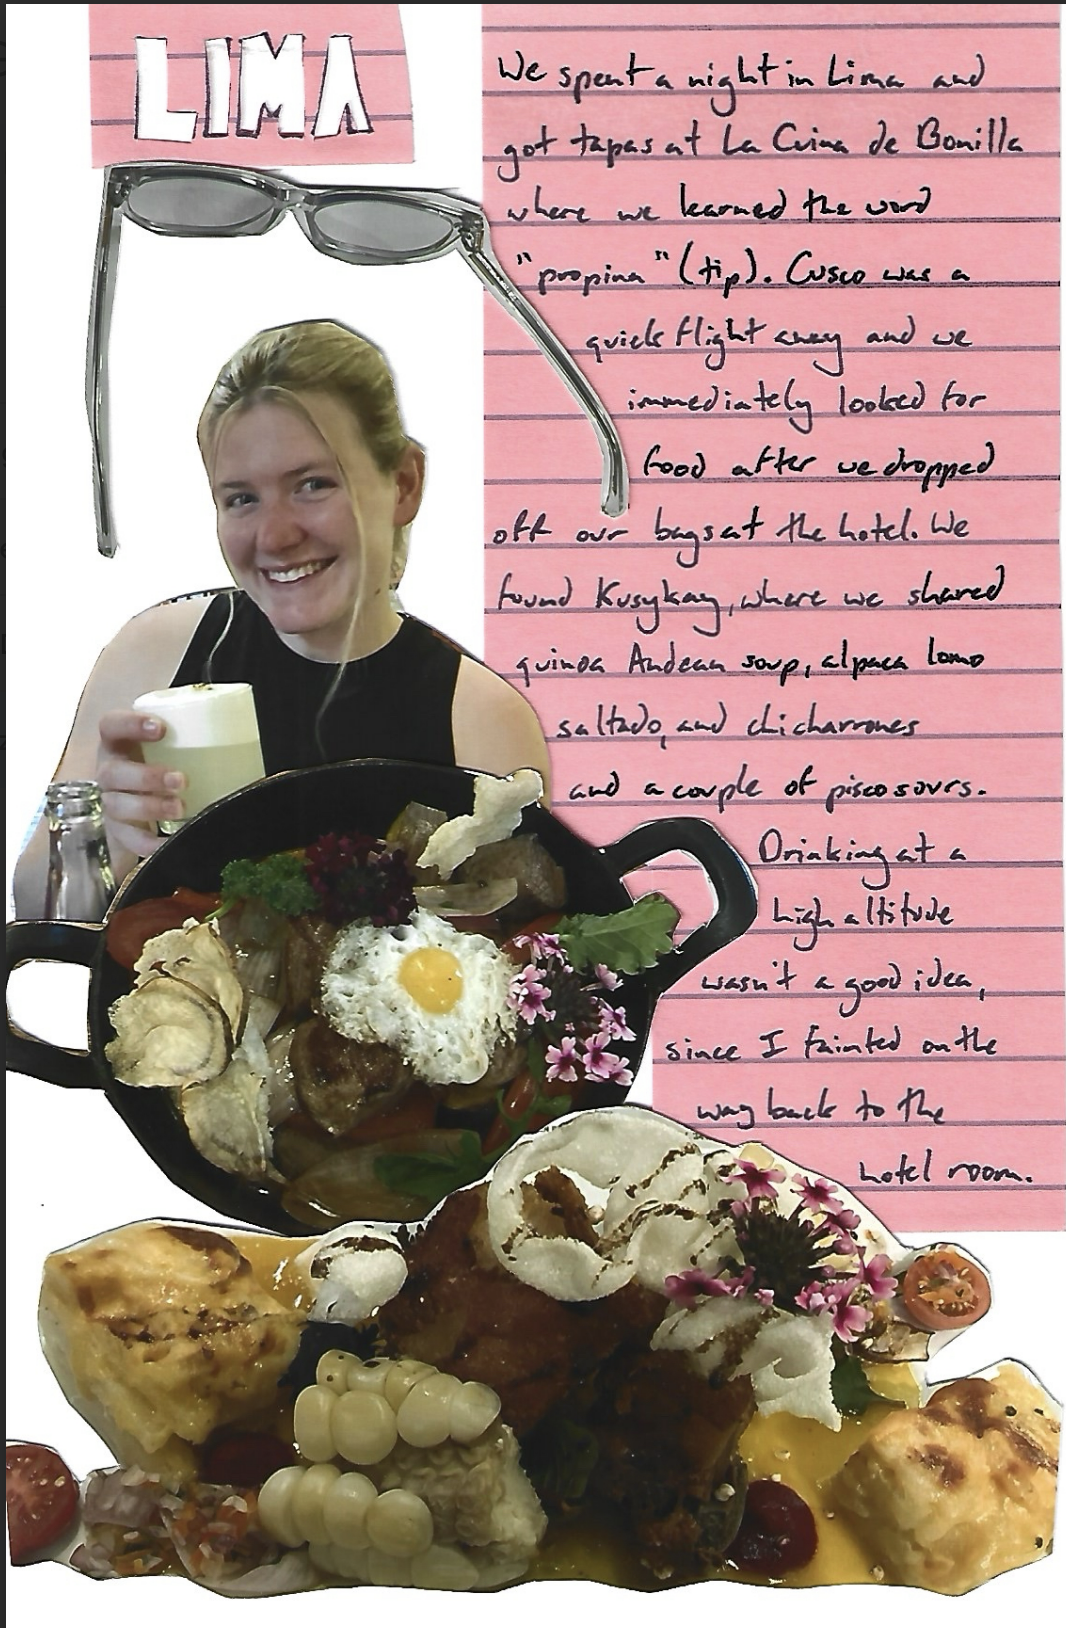 LIMA
We spent a night in Lima and
got tapas at La Cuina de Bonilla
where we learned the word
"propina" (tip). Cusco was a
quick flight away and we
immediately looked for
food after we dropped
off our bags at the hotel. We
found Kusykay, where we shared
quinoa Andean soup, alpaca lomo
saltado, and chicharrones
and a couple of pisco sours.
Drinking at a
high altitude
wasn't a good idea,
since I fainted on the
way back to the
hotel room.